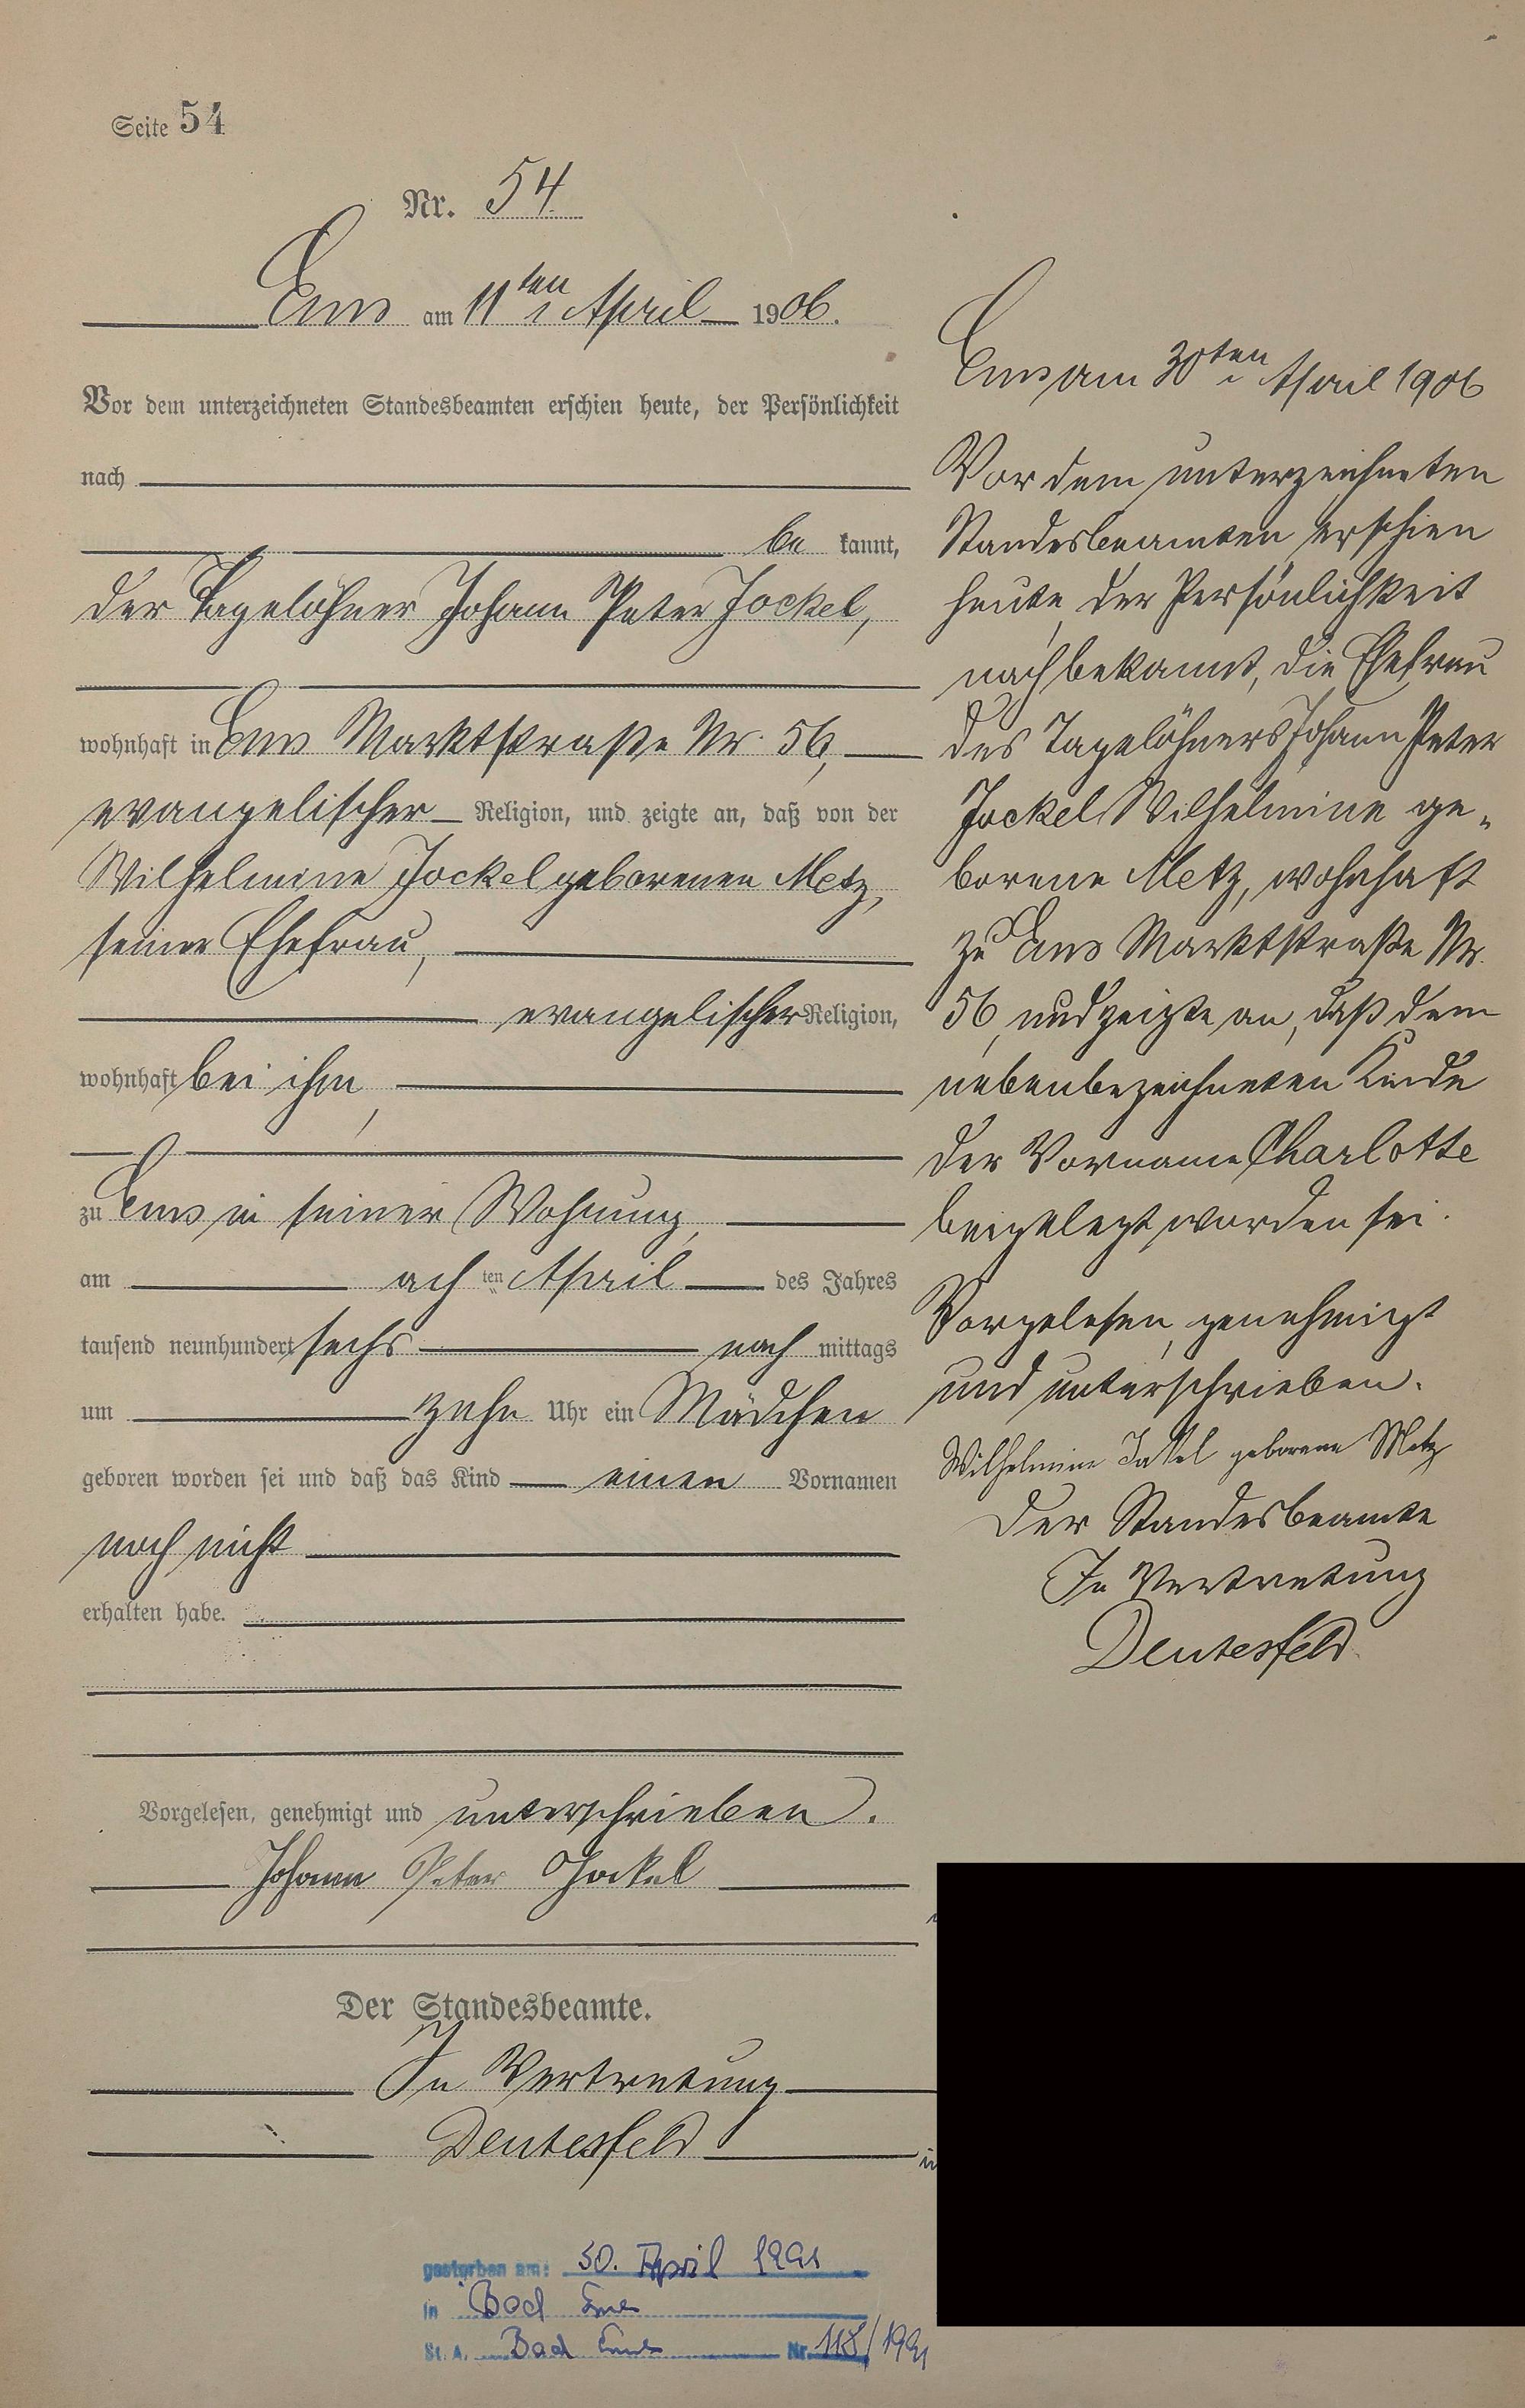 Seite 54
Nr. 54
Ems am 11ten April 1906.
Vor dem unterzeichneten Standesbeamten erschien heute, der Persönlichkeit
nach
be kannt,
der Tagelöhner Johann Peter Jockel,
wohnhaft in Ems Marktstraße Nr. 56,
evangelischer Religion, und zeigte an, daß von der
Wilhelmine Jockel geborenen Metz,
seiner Ehefrau,
evangelischer Religion,
wohnhaft bei ihm,
zu Ems in seiner Wohnung,
am achten April des Jahres
tausend neunhundert sechs nach mittags
um zehn Uhr ein Mädchen
geboren worden sei und daß das Kind einen Vornamen
noch nicht
erhalten habe.
Vorgelesen, genehmigt und unterschrieben.
Johann Peter Jockel
Der Standesbeamte.
In Vertretung
Deutesfeld
Ems am 30ten April 1906
Vor dem unterzeichneten
Standesbeamten erschien
heute, der Persönlichkeit
nach bekannt, die Ehefrau
des Tagelöhners Johann Peter
Jockel Wilhelmine ge-
borene Metz, wohnhaft
zu Ems Marktstraße Nr.
56, und zeigte an, daß dem
nebenbezeichneten Kinde
der Vorname Charlotte
beigelegt worden sei.
Vorgelesen, genehmigt
und unterschrieben.
Wilhelmine Jakel geborene Metz
Der Standesbeamte
In Vertretung
Deutesfeld
gestorben am: 30. April 1991
in Bad Ems
St. A. Bad Ems Nr. 118/1991